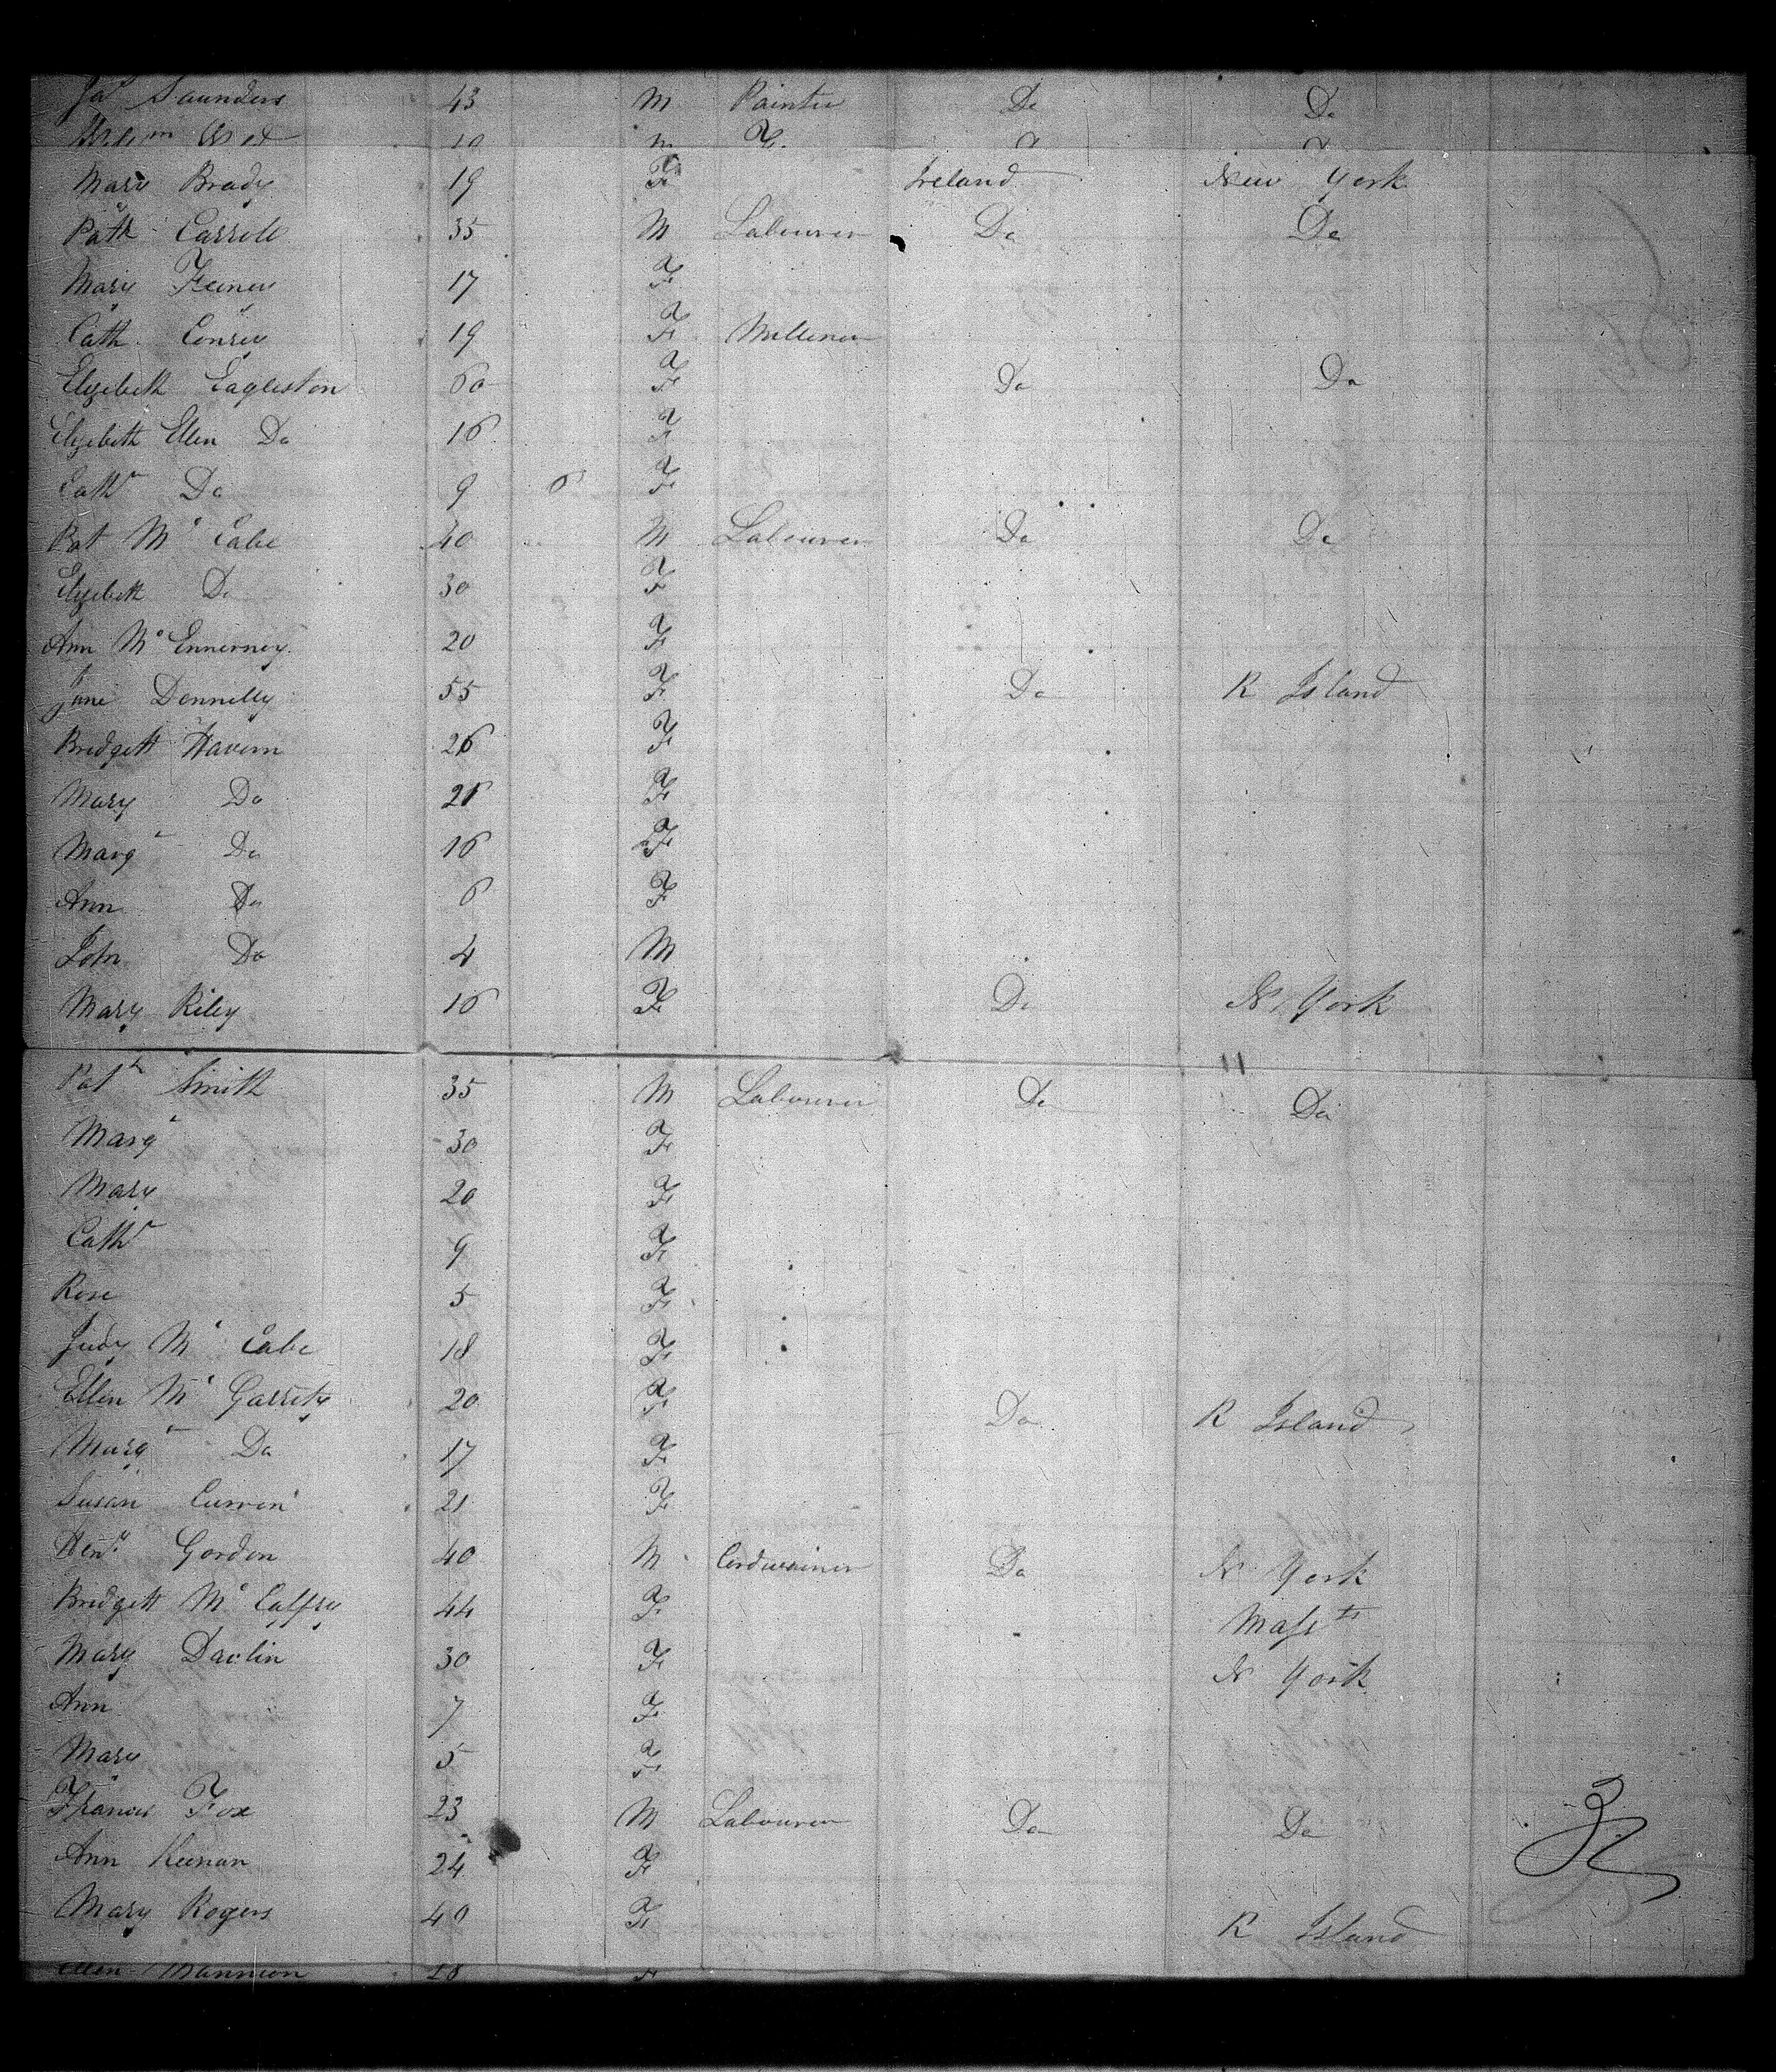 Jas Saunders 43 M Painter Do Do
10 m
Mary Brady 19 F Ireland New York
Patk Carroll 35 M Labourer Do Do
Mary Feeney 17 F
Cath. Conrey 19 F Milliner
Elizebeth Eagleston 60 F Do Do
Elizebeth Ellen Do 16 F
Cathr Do 9 6 F
Pat Mc Cabe 40 M Labourer Do Do
Elizebeth Do 30 F
Ann Mc Ennerney 20 F
Jane Donnelly 55 F Do R Island
Bridgett Havern 26 F
Mary Do 21 F
Margt Do 16 F
Ann Do 6 F
John Do 4 M
Mary Riley 16 F Do N York
11
Patk Smith 35 M Labourer Do Do
Margt 30 F
Mary 20 F
Cathr 9 F
Rose 5 F
Judy Mc Cabe 18 F
Ellen Mc Garrety 20 F Do R Island
Margt Do 17 F
Susan Curren 21 F
Heny Gordon 40 M Cordwainer Do N York
Bridgett Mc Caffry 44 F Massts
Mary Davlin 30 F N York
Ann 7 F
Mary 5 F
Francis Fox 23 M Labourer Do Do
Ann Keenan 24 F
Mary Rogers 40 F R Island
Ellen Mannion F